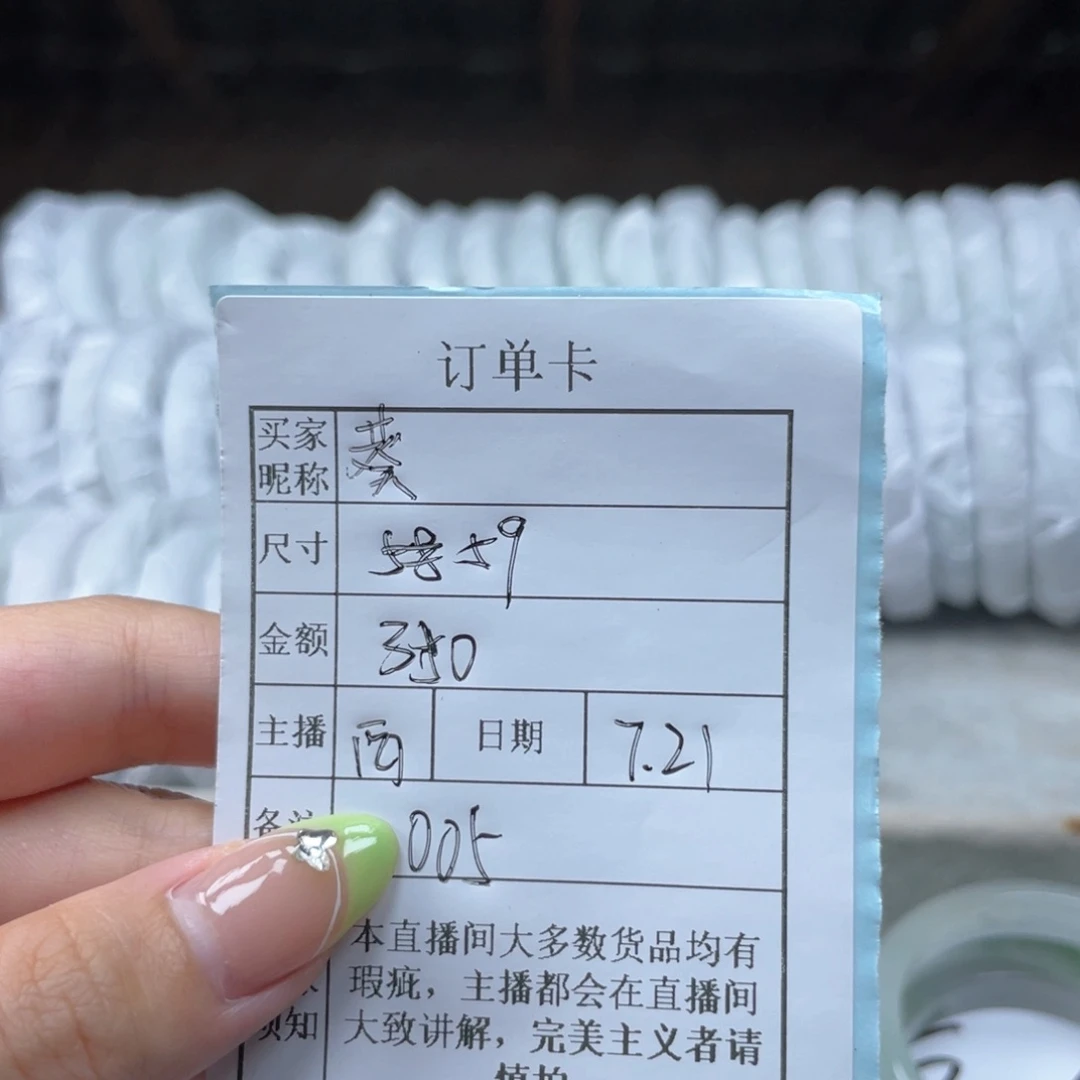 订单卡
买家
昵称
尺寸 58 59
金额 350
主播 日期 7.21
005
须知
本直播间大多数货品均有
瑕疵，主播都会在直播间
大致讲解，完美主义者请
慎拍